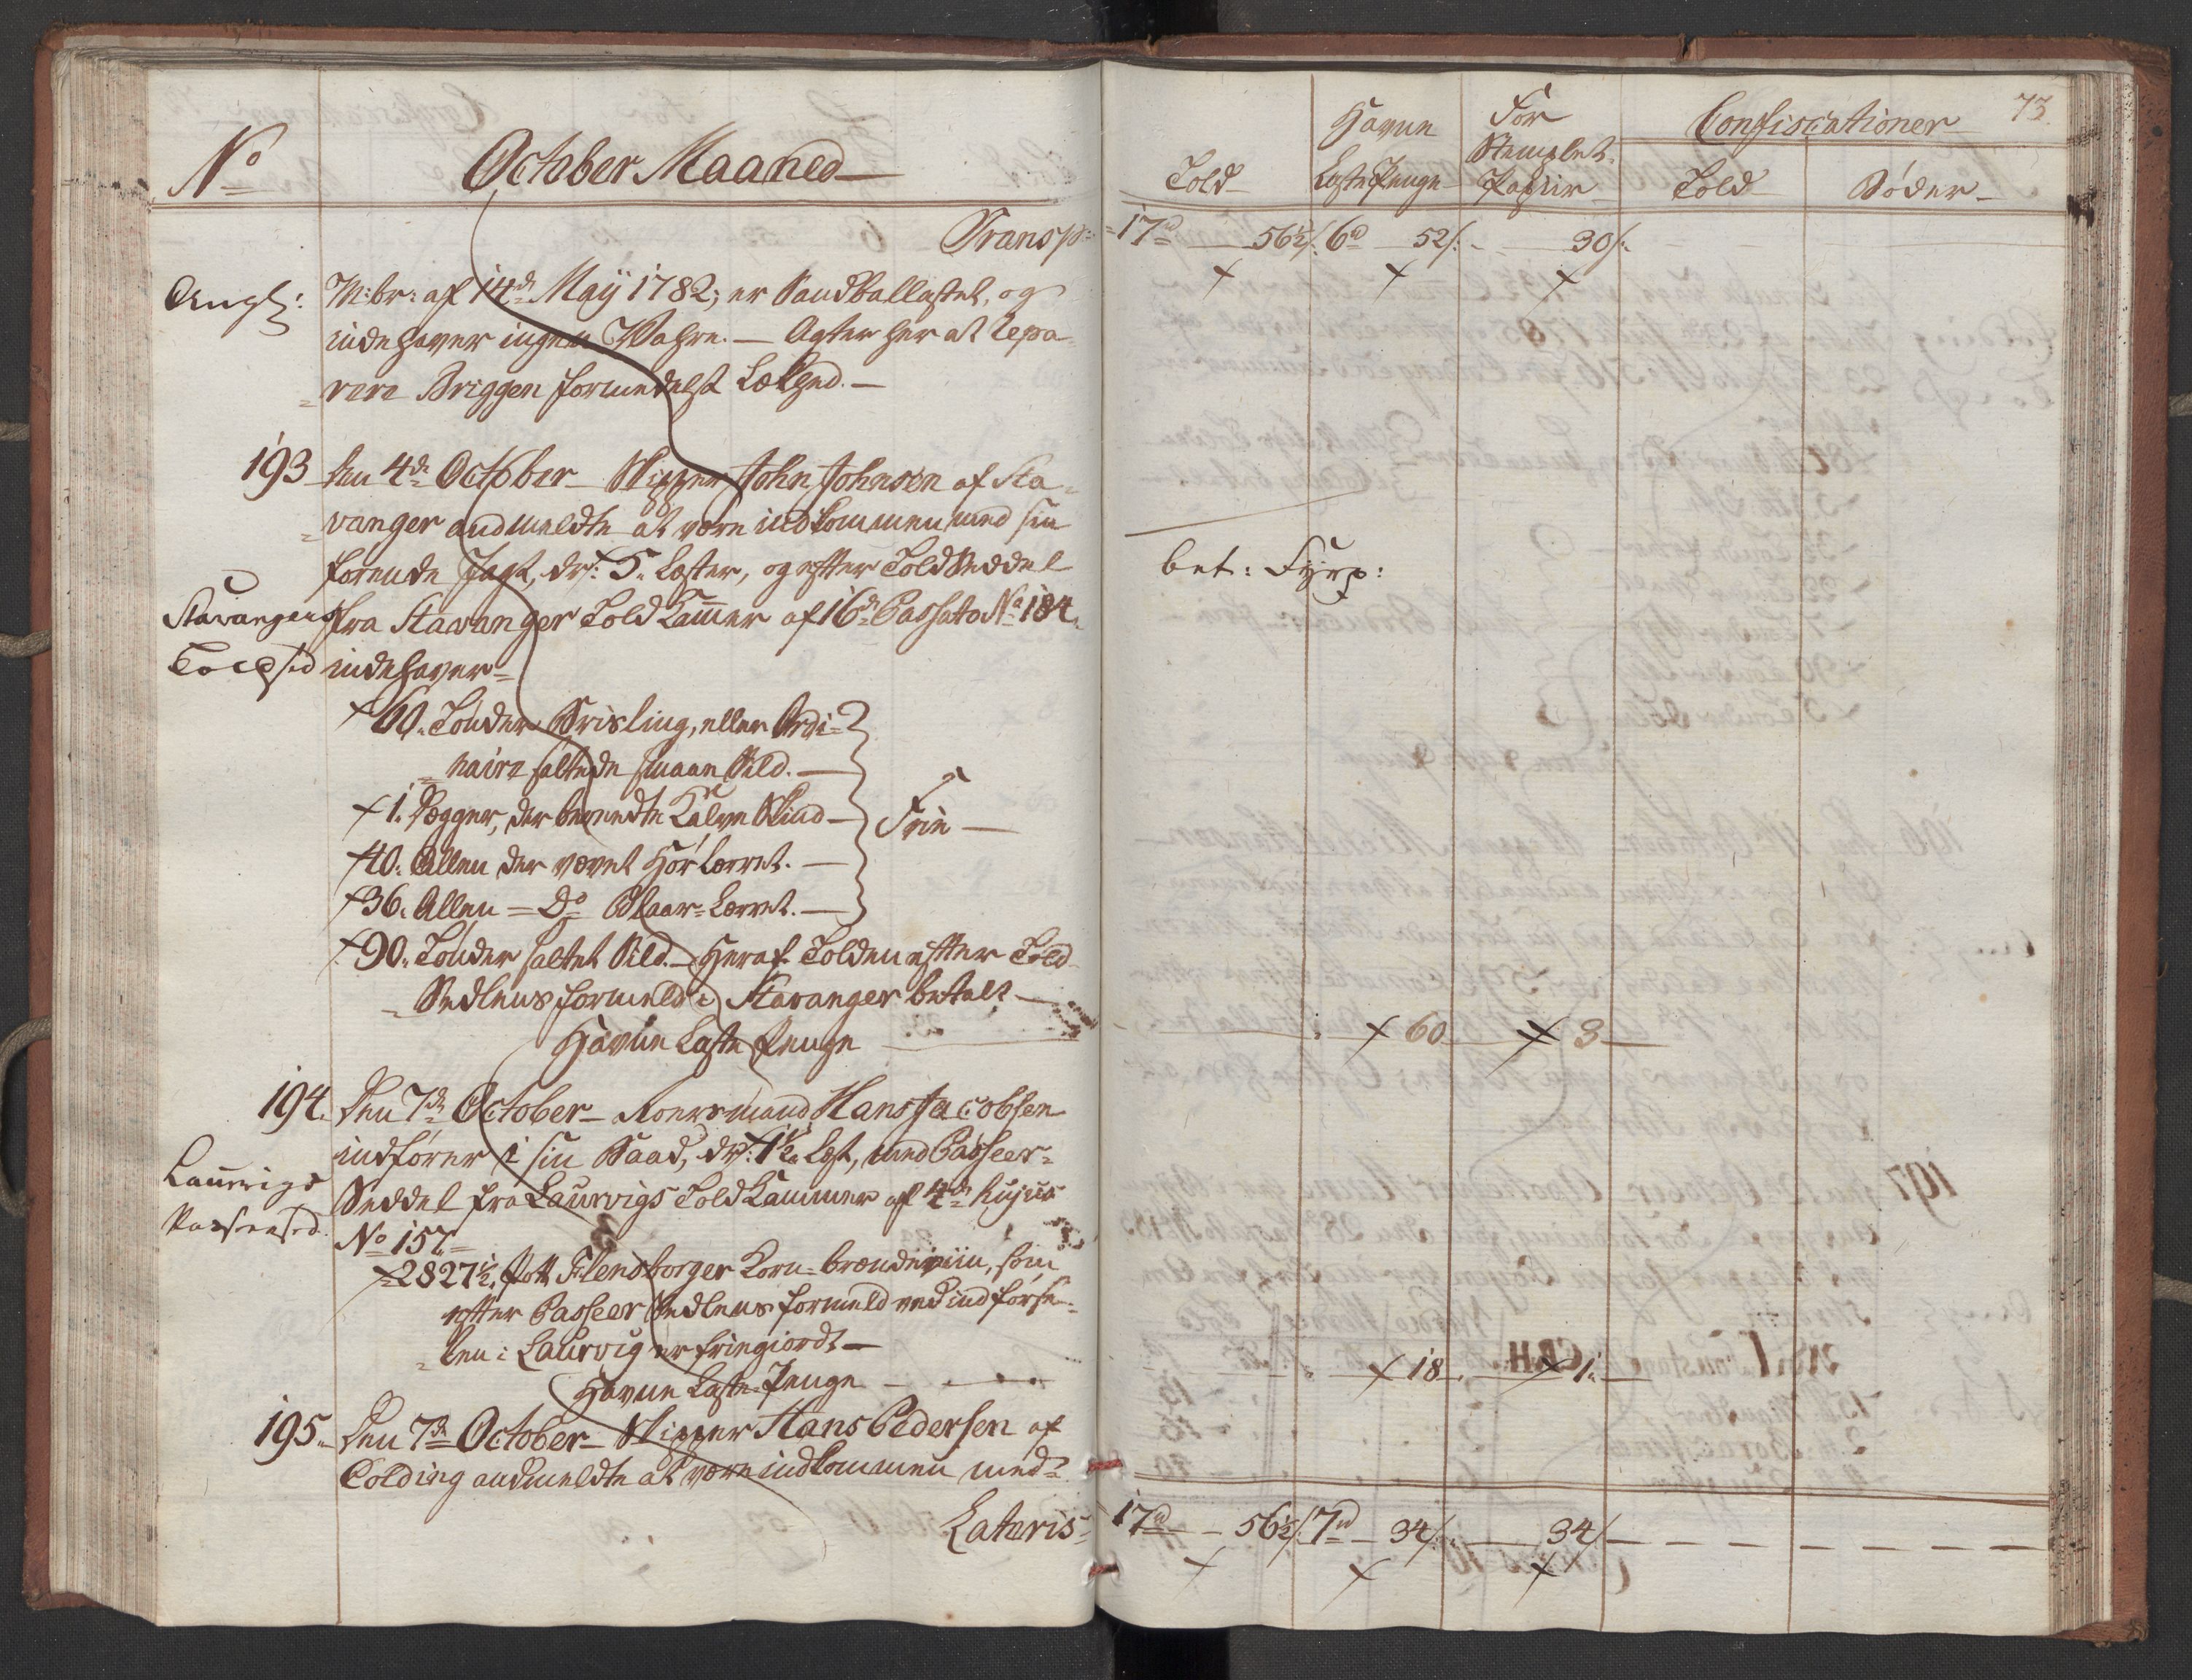 No
October Maaned
Transp:
Angl:
M:br: af 14de Maÿ 1782; er Sandballastet, og
indehaver ingen Wahre. — Agter her at repa-
rere Briggen formedelst Lækhed. —
193
den 4de October Skipper John Johnsen af Sta-
vanger andmeldte at være indkommen med sin
førende Jagt, dr: 5 Læster, og efter Told Seddel
Stavangers
fra Stavanger Told Kammer af 16de Passato No 184.
Toldsed
indehaver
60. Tønder Brisling, eller Ordi-
naire saltede smaae Sild. —
1. Dægger, der beredte Kalve Skind —
Frie —
40. Allen der vævet Hør Lærret. —
36. Allen = Do Blaar-Lærret. —
90. Tønder saltet Sild. — Heraf Tolden efter Told
Sedlens formeld i Stavanger betalt —
Havne Læste Penge
194.
Den 7de October Roersmand Hans Jacobsen
indfører i sin Baad, dr: 1½ Læst, med Passeer-
Laurvigs
Seddel fra Laurvigs Told Kammer af 4de hujus
Passersed.
No 157.
2827½ Pott Flensborger Korn-brændeviin, som
efter Passeer Sedlens formeld ved indførse-
len i Laurvig er friegiordt —
Havne Læste-Penge
195.
Den 7de October Skipper Hans Pedersen af
Colding andmeldte at være indkommen med
Lateris
73.
Told
Havne
Læste Penge
For
Stemplet
Papiir
Confiscationer
Told
Bøder
17rd 56½ s. 6rd 52 s. 30 s.
bet: Fyrp:
60 3
18 1.
17rd 56½ s. 7rd 34 s. 34 s.